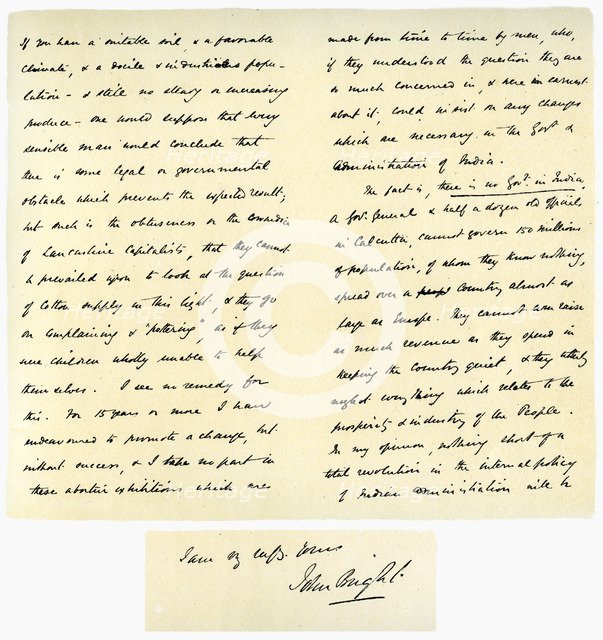 If you have a suitable soil, & a favorable
climate, & a docile & industrious popu-
lation - & still no steady or increasing
produce - one would suppose that every
sensible man would conclude that
there is some legal or governmental
obstacle which prevents the expected result;
but such is the obtuseness or the cowardice
of Lancashire Capitalists, that they cannot
be prevailed upon to look at the question
of Cotton supply in this light, & they go
on complaining & "pottering", as if they
were children wholly unable to help
themselves. I see no remedy for
this. For 15 years or more I have
endeavoured to promote a change, but
without success, & I take no part in
these abortive exhibitions which are
made from time to time by men, who,
if they understood the question they are
so much concerned in, & were in earnest
about it, could insist on any changes
which are necessary in the Govt &
Administration of India.
The fact is, there is no Govt. in India,
a Govr. General & half a dozen old officials
in Calcutta, cannot govern 150 millions
of population, of whom they know nothing,
spread over a country almost as
large as Europe. They cannot even raise
as much revenue as they spend in
keeping the Country quiet, & they utterly
neglect everything which relates to the
prosperity & industry of the People.
In my opinion, nothing short of a
total revolution in the internal policy
of Indian administration will be
I am Yours
John Bright.